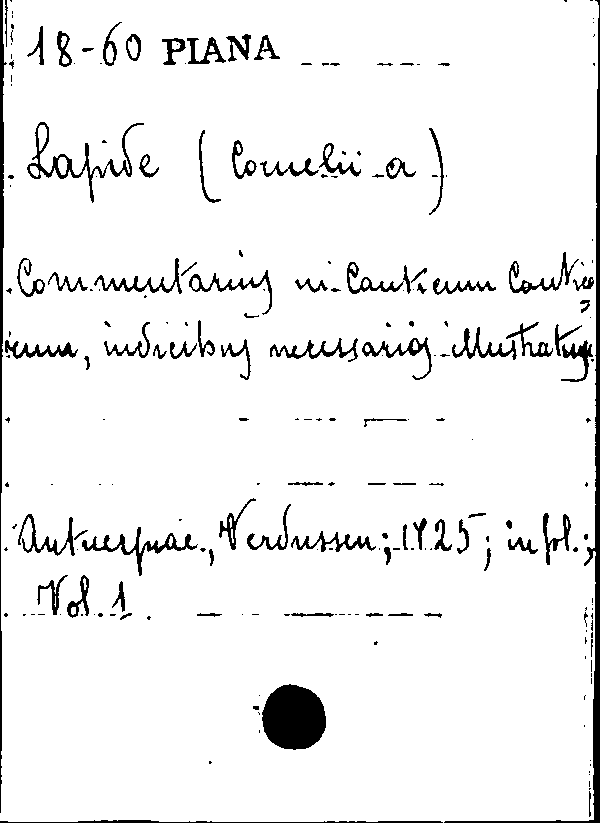 18-60 PIANA
Lapide (Cornelii a)
Commentarius in Canticum Cantico=
rum, indicibus necessariis illustratus
Antuerpiae, Verdussen; 1725; in fol.;
Vol. 1.